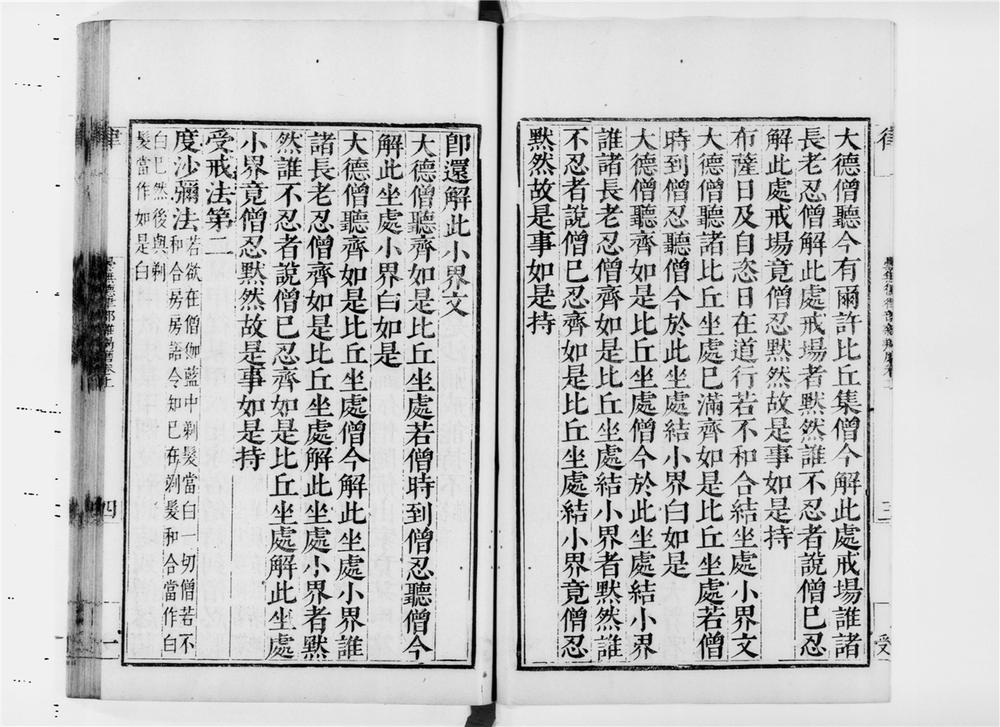 大德僧聽今有爾許比丘集僧今解此處戒場誰諸
長老忍僧解此處戒場者默然誰不忍者說僧已忍
解此處戒場竟僧忍默然故是事如是持
布薩日及自恣日在道行若不和合結坐處小界文
大德僧聽諸比丘坐處已滿齊如是比丘坐處若僧
時到僧忍聽僧今於此坐處結小界白如是
大德僧聽齊如是比丘坐處僧今於此坐處結小界
誰諸長老忍僧齊如是比丘坐處結小界者默然誰
不忍者說僧已忍齊如是比丘坐處結小界竟僧忍
默然故是事如是持
律
三
受
卽還解此小界文
大德僧聽齊如是比丘坐處若僧時到僧忍聽僧今
解此坐處小界白如是
大德僧聽齊如是比丘坐處僧今解此坐處小界誰
諸長老忍僧齊如是比丘坐處解此坐處小界者默
然誰不忍者說僧已忍齊如是比丘坐處解此坐處
小界竟僧忍默然故是事如是持
受戒法第二
度沙彌法若欲在僧伽藍中剃髮當白一切僧若不
和合房房語令知已在剃髮和合當作白
白已然後與剃
髮當作如是白
律
四
一